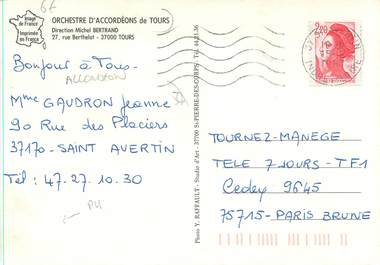 6€
Image
de France
Imprimée
en France
ORCHESTRE D'ACCORDÉONS de TOURS
Direction Michel BERTRAND
27, rue Berthelot - 37000 TOURS
Bonjour à Tous
ACCORDEON
Mme GAUDRON Jeanne
90 Rue des Placiers
37170 - SAINT AVERTIN
Tél : 47.27.10.30
PU
Photo Y. RAFFAULT - Studio d'Art - 37700 St-PIERRE-DES-CORPS -
2,20
TOURNEZ-MANEGE
TELE 7 JOURS - TF1
Cedex 9645
75715 - PARIS BRUNE